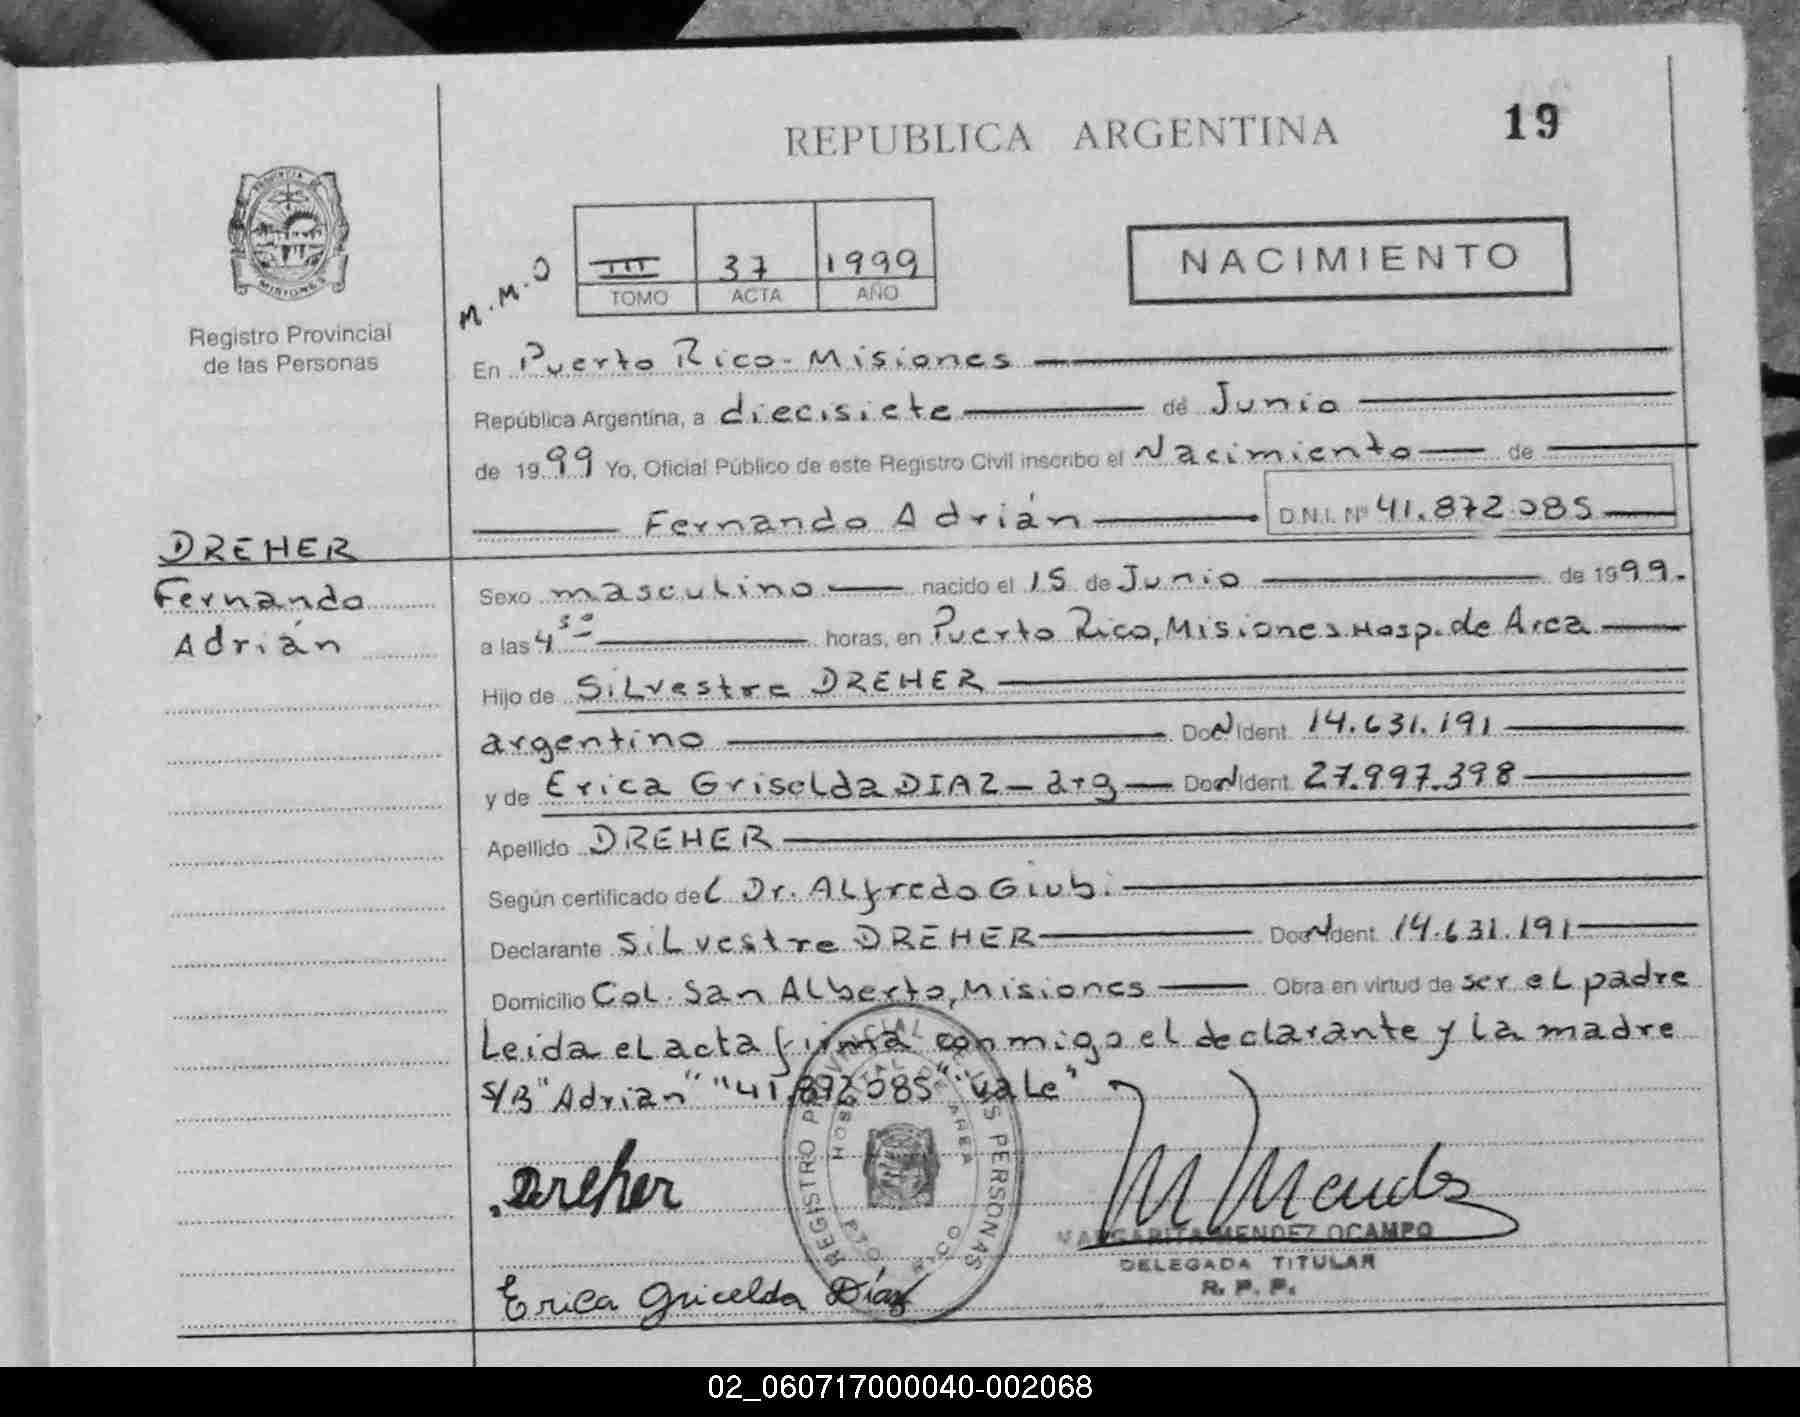 REPUBLICA ARGENTINA
19
PROVINCIA DE
MISIONES
Registro Provincial
de las Personas
M.M.O
III 37 1999
TOMO ACTA AÑO
NACIMIENTO
En Puerto Rico - Misiones
República Argentina, a diecisiete de Junio
de 1999 Yo, Oficial Público de este Registro Civil inscribo el Nacimiento de
Fernando Adrián D.N.I. Nº 41.872.085
DREHER
Fernando
Adrián
Sexo masculino nacido el 15 de Junio de 1999.
a las 4 30 horas, en Puerto Rico, Misiones Hosp. de Area
Hijo de Silvestre DREHER
argentino Doc N Ident. 14.631.191
y de Erica Griselda DIAZ - arg - Doc N Ident. 27.997.398
Apellido DREHER
Según certificado del Dr. Alfredo Giubi
Declarante Silvestre DREHER Doc N Ident. 14.631.191
Domicilio Col. San Alberto, Misiones Obra en virtud de ser el padre
Leida el acta firma conmigo el declarante y la madre
S/B "Adrián" "41.872.085" "Vale"
Dreher
REGISTRO PROVINCIAL DE LAS PERSONAS
HOSPITAL DE AREA
PTO RICO
M Mendez
MARGARITA MENDEZ OCAMPO
DELEGADA TITULAR
R. P. P.
Erica Gricelda Díaz
02_060717000040-002068